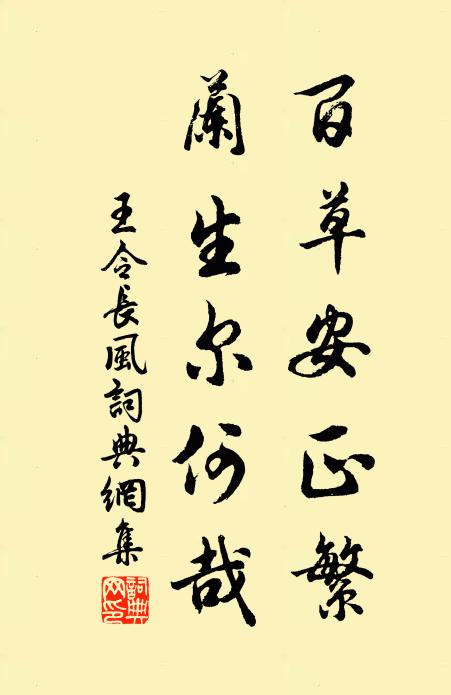 百草安正繁
蘭生尔何哉
王令長風詞典網集
詞典网印